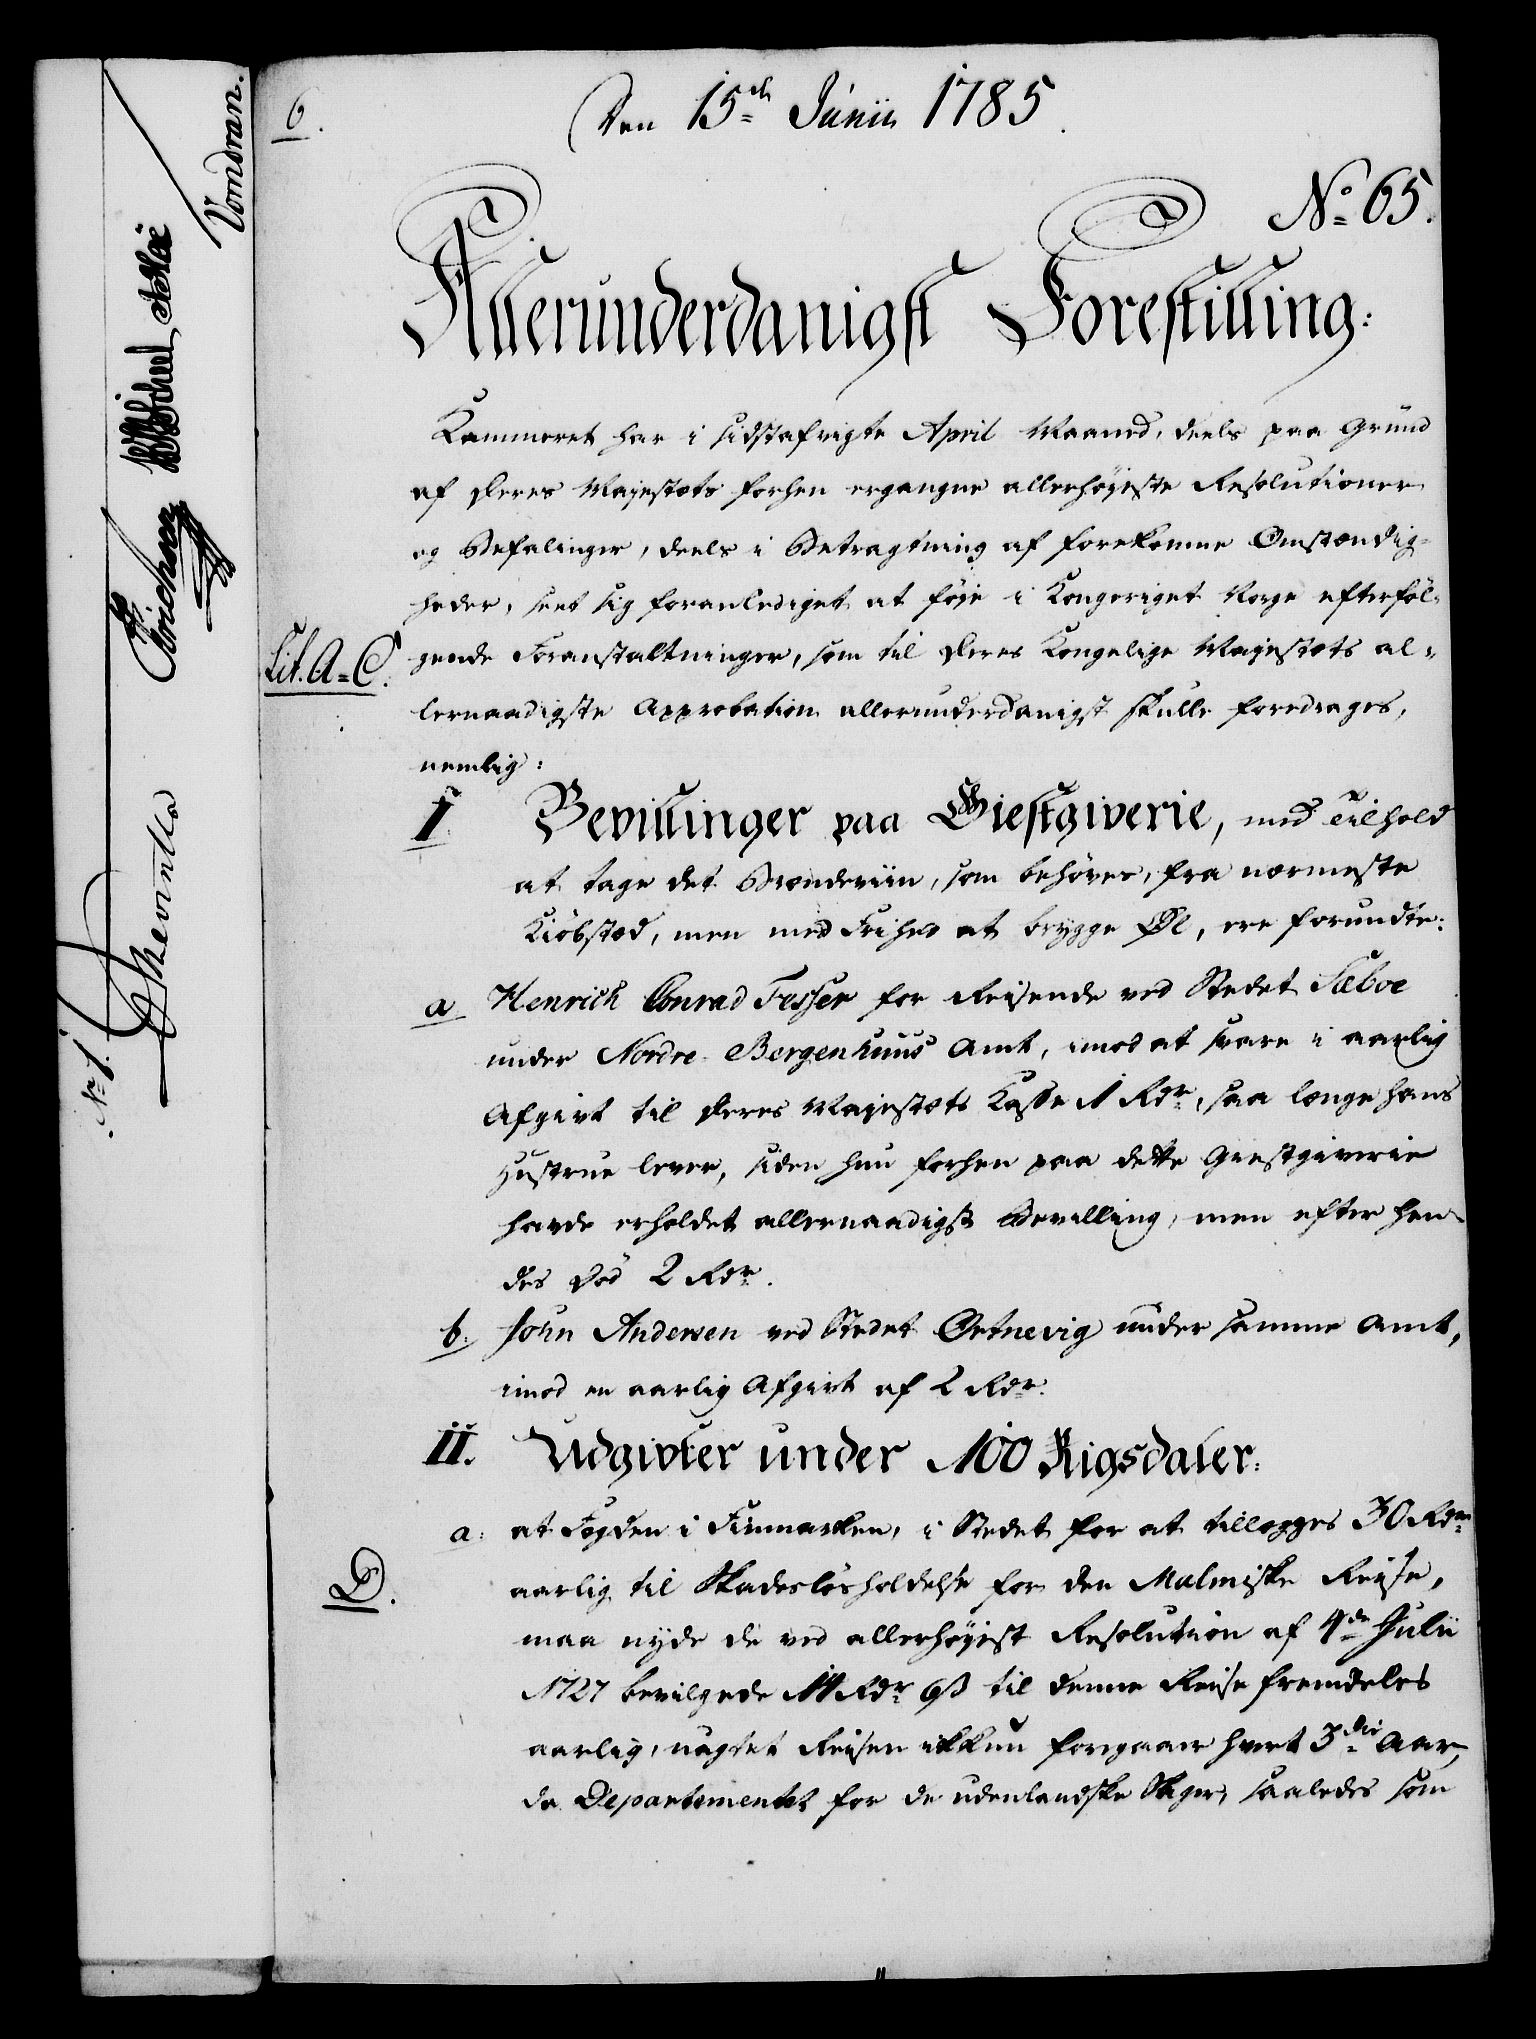 6.
Den 15de Junii 1785.
No 65.
Allerunderdanigst Forestilling:
Kammeret har i sidstafvigte April Maaned, deels paa Grund
af Deres Majestæts forhen ergangne allerhøyeste Resolutioner
og Befalinger, deels i Betragtning af forekomne Omstændig-
heder, seet sig foranlediget at føje i Kongeriget Norge efterføl-
Lit. A-C.
gende Foranstaltninger, som til Deres Kongelige Majestæts al-
lernaadigste Approbation allerunderdanigst skulle foredrages,
nemlig:
I. Bevillinger paa Giestgiverie, med Tilhold
at tage det Brændeviin, som behøves, fra nærmeste
Kiöbstæd, men med Frihed at brygge Øl, ere forundte:
a Henrich Conrad Fesser for Reisende ved Stedet Sæboe
under Nordre Bergenhuus Amt, imod at svare i aarlig
Afgivt til Deres Majestæts Kasse 1 Rdr, saa længe hans
Hustrue lever, siden hun forhen paa dette Giestgiverie
havde erholdet allernaadigst Bevilling, men efter hen-
des Død 2 Rdr.
b. John Andersen ved Stedet Ortnevig under samme Amt,
imod en aarlig Afgivt af 2 Rdr.
II. Udgivter under 100 Rigsdaler.
a. at Fogden i Finmarken, i Stedet for at tillægges 30 Rdr
aarlig til Skadeslösholdelse for den Malmiske Reise,
D.
maa nyde de ved allerhøyest Resolution af 4de Julii
1727 bevilgede 11 Rdr 6 ß til denne Reise fremdeles
aarlig, uagtet Reisen ikkun foregaaer hvert 3die Aar,
da Departementet for de udenlandske Sager, saaledes som
Vondran.
Erichsen
No 1.